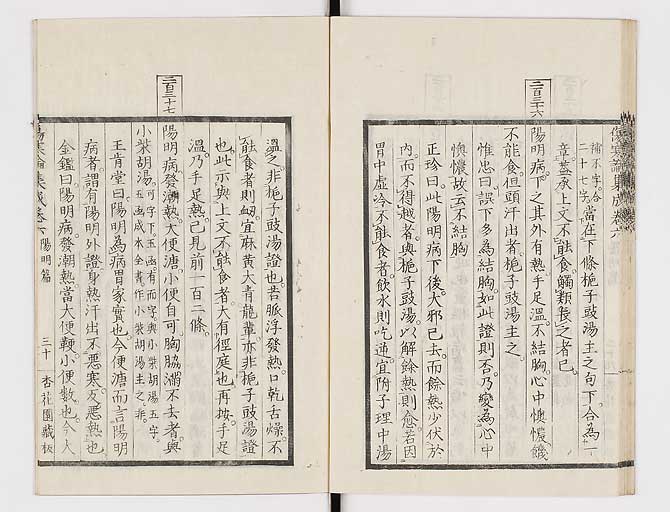 傷寒論集成卷六
二百三十六
補不字合
二十七字當在下條梔子豉湯主之句下合為一
章蓋承上文不能食觸類長之者已
陽明病下之其外有熱手足溫不結胸心中懊憹饑
不能食但頭汗出者梔子豉湯主之
惟忠曰誤下多為結胸如此證則否乃變為心中
懊憹故云不結胸
正珍曰此陽明病下後大邪已去而餘熱少伏於
內而不得越者與梔子豉湯以解餘熱則愈若因
胃中虛冷不能食者飲水則吃逆宜附子理中湯
溫之非梔子豉湯證也若脈浮發熱口乾舌燥不
能食者則衄宜麻黃大青龍輩亦非梔子豉湯證
也此亦與上文不能食者大有徑庭也再按手足
溫乃手足熱已見前一百二條
二百三十七
陽明病發潮熱大便溏小便自可胸脇滿不去者與
小柴胡湯可字下玉函有而字與小柴胡湯五字
玉函成本全書作小柴胡湯主之非
王肯堂曰陽明為病胃家實也今便溏而言陽明
病者謂有陽明外證身熱汗出不惡寒反惡熱也
金鑑曰陽明病發潮熱當大便鞕小便數也今大
傷寒論集成卷六 陽明篇 三十 杏花園藏板